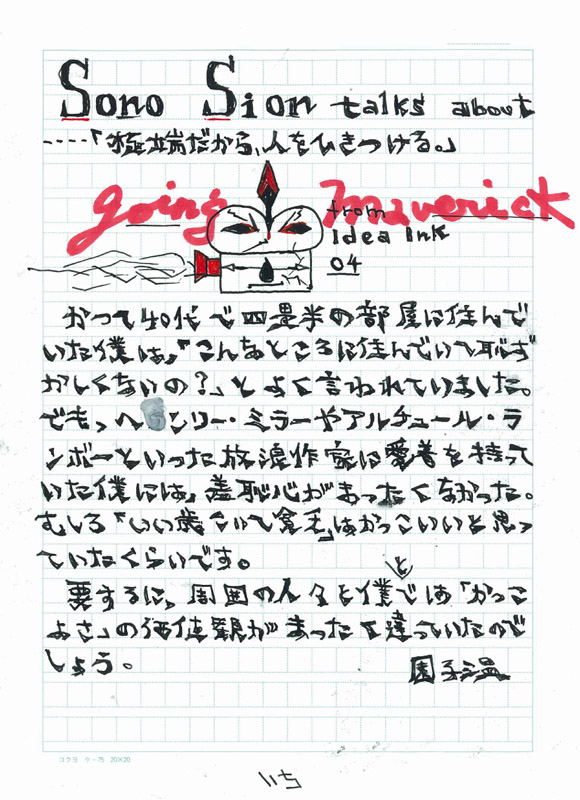 Sono Sion talks about
----「極端だから、人をひきつける。」
going maverick
from
Idea Ink
04
かつて40代で四畳半の部屋に住んで
いた僕は、「こんなところに住んでいて恥ず
かしくないの？」とよく言われていました。
でも、ヘンリー・ミラーやアルチュール・ラ
ンボーといった放浪作家に愛着を持って
いた僕には、羞恥心がまったくなかった。
むしろ「いい歳こいて貧乏」はかっこいいと思っ
ていたくらいです。
と
要するに、周囲の人々と僕では「かっこ
よさ」の価値観がまったく違っていたので
しょう。
園子温
コクヨ ケ-75 20×20
いち